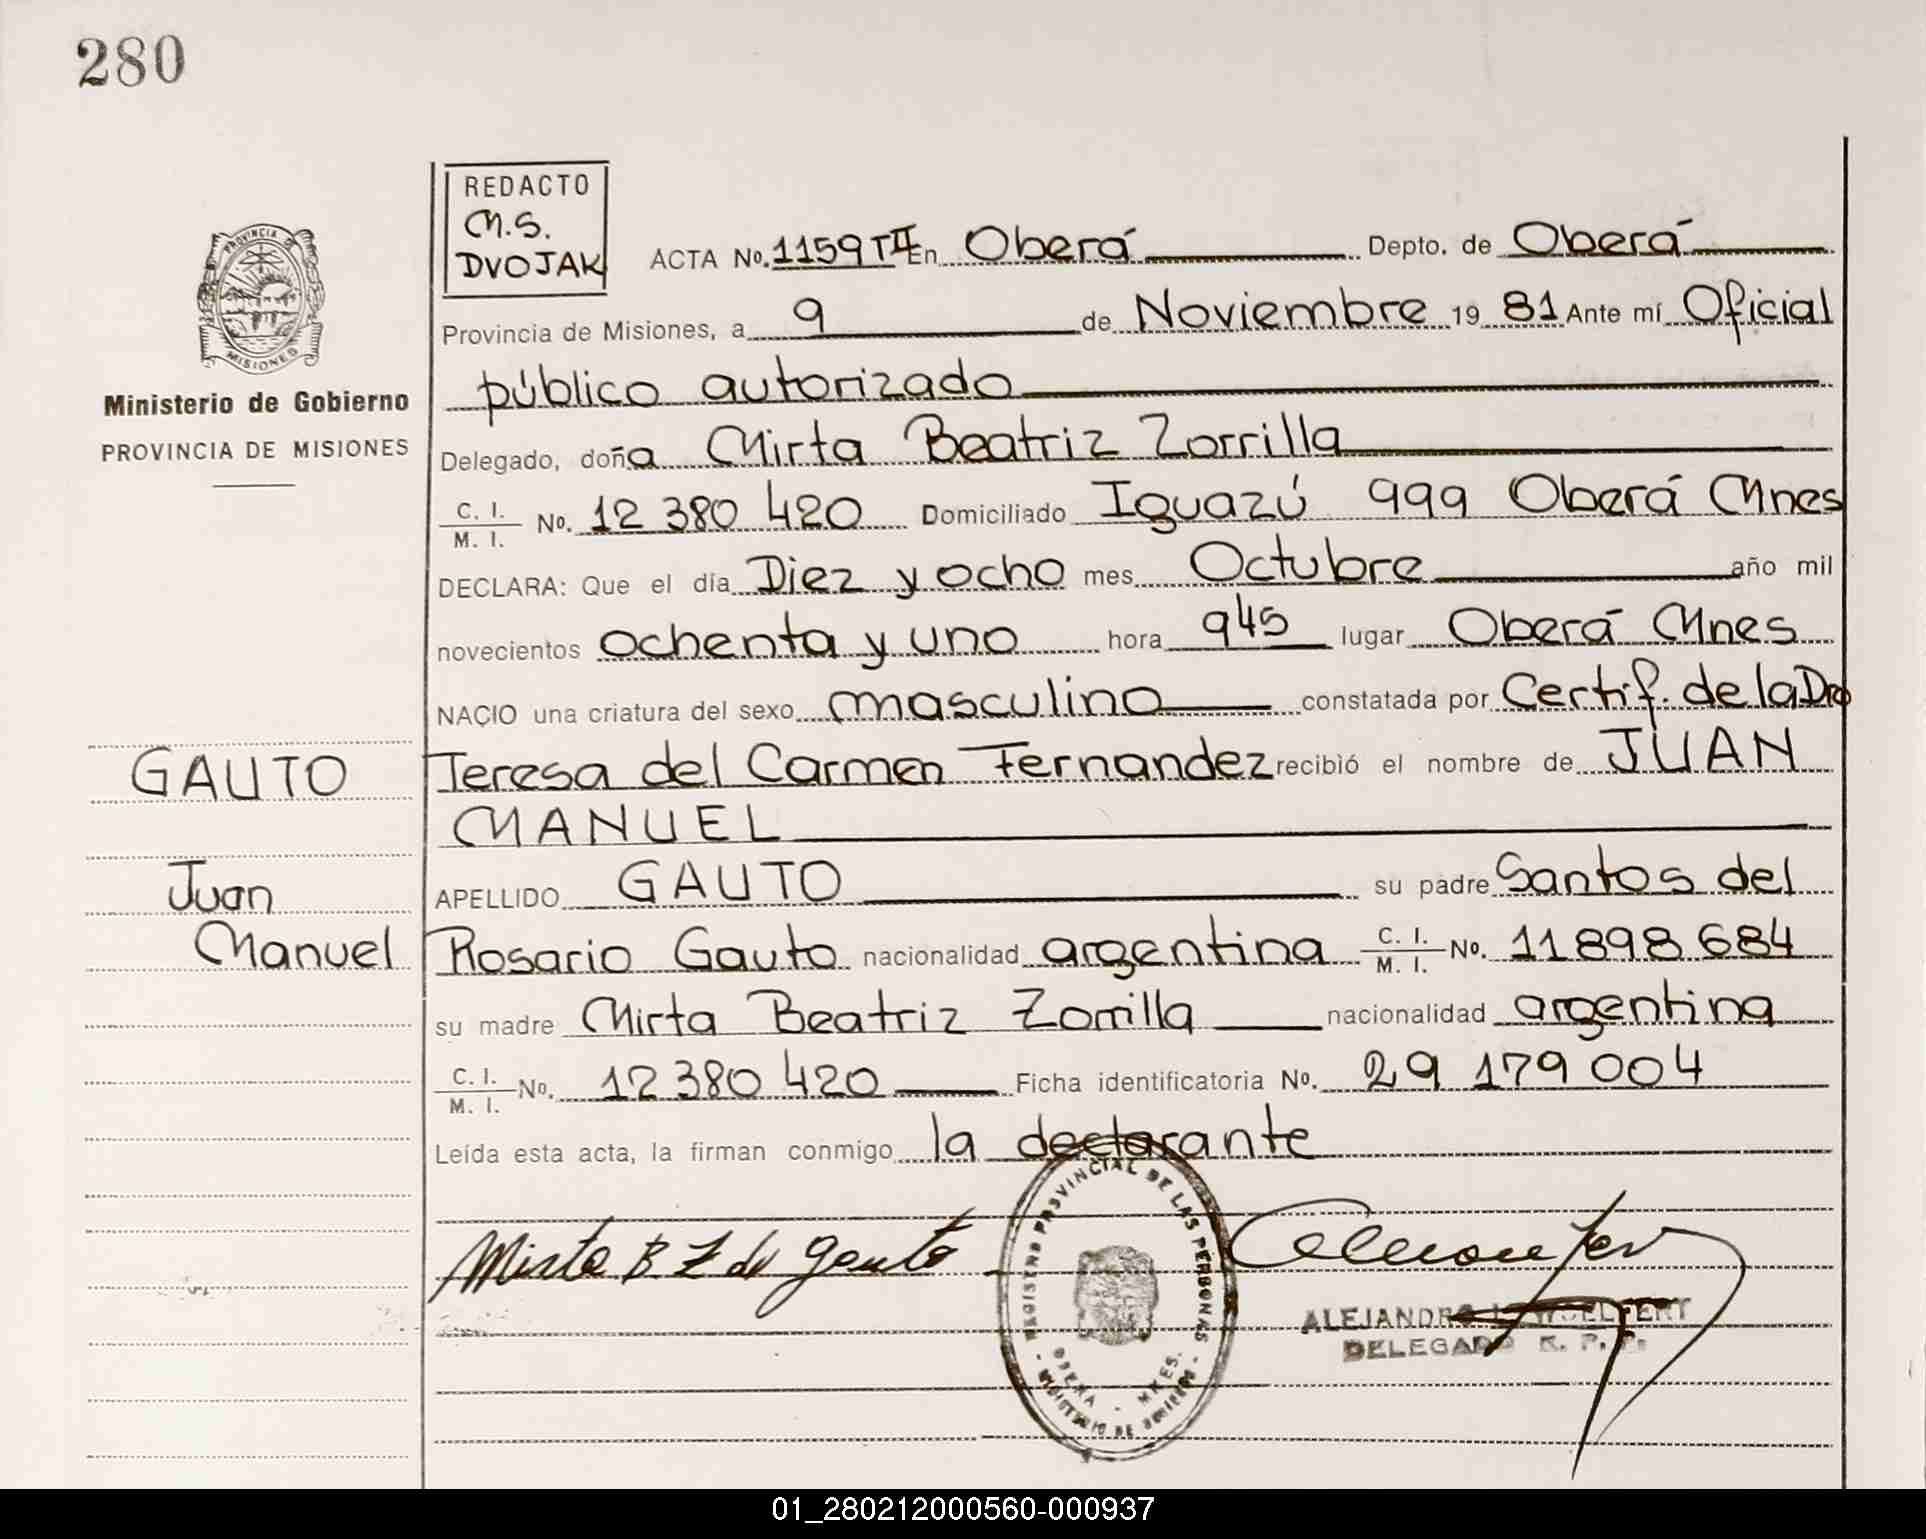 280
REDACTO
M.S.
DVOJAK
PROVINCIA DE
MISIONES
Ministerio de Gobierno
PROVINCIA DE MISIONES
ACTA No. 1159 TII En Oberá Depto. de Oberá
Provincia de Misiones, a 9 de Noviembre 19 81 Ante mí Oficial
público autorizado
Delegado, doña Mirta Beatriz Zorrilla
C. I.
M. I. No. 12 380 420 Domiciliado Iguazú 999 Oberá Mnes
DECLARA: Que el día Diez y ocho mes Octubre año mil
novecientos ochenta y uno hora 945 lugar Oberá Mnes
NACIO una criatura del sexo masculino constatada por Certif. de la Dra
GAUTO
Teresa del Carmen Fernandez recibió el nombre de JUAN
MANUEL
Juan
Manuel
APELLIDO GAUTO su padre Santos del
Rosario Gauto nacionalidad argentina C. I. M. I. No. 11 898 684
su madre Mirta Beatriz Zorrilla nacionalidad argentina
C. I.
M. I. No. 12 380 420 Ficha identificatoria No. 29 179 004
Leída esta acta, la firman conmigo la declarante
Mirta B Z de Gauto
REGISTRO PROVINCIAL DE LAS PERSONAS
OBERA - MNES.
MINISTERIO DE GOBIERNO
ALEJANDRO
DELEGADO R. P. P.
01_280212000560-000937